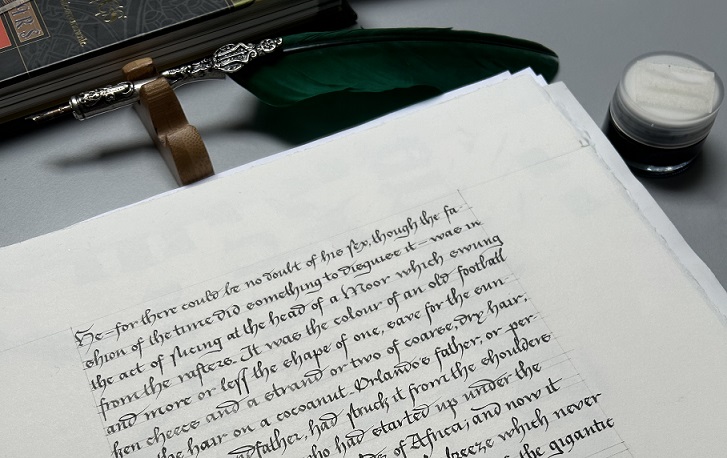 He—for there could be no doubt of his sex, though the fa-
shion of the time did something to disguise it—was in
the act of slicing at the head of a Moor which swung
from the rafters. It was the colour of an old football
and more or less the shape of one, save for the sun
ken cheeks and a strand or two of coarse, dry hair,
the hair on a cocoanut. Orlando's father, or per-
had struck it from the shoulders
who had started up under the
of Africa; and now it
breeze which never
the gigantic